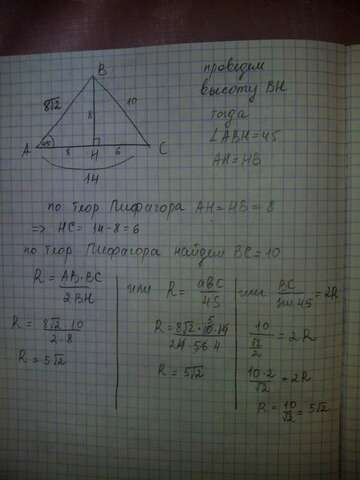 B
8√2
8
10
A
45
8
H
6
C
14
проведем
высоту BH
тогда
∠ABH=45
AH=HB
по теор Пифагора AH=HB=8
=> HC= 14-8=6
по теор Пифагора найдем BC=10
R= AB·BC / 2BH
R= 8√2·10 / 2·8
R= 5√2
или
R= abc / 4S
R= 5√2
или BC / sin 45 =2R
10 / √2/2 =2R
10·2 / √2 =2R
R= 10/√2 =5√2